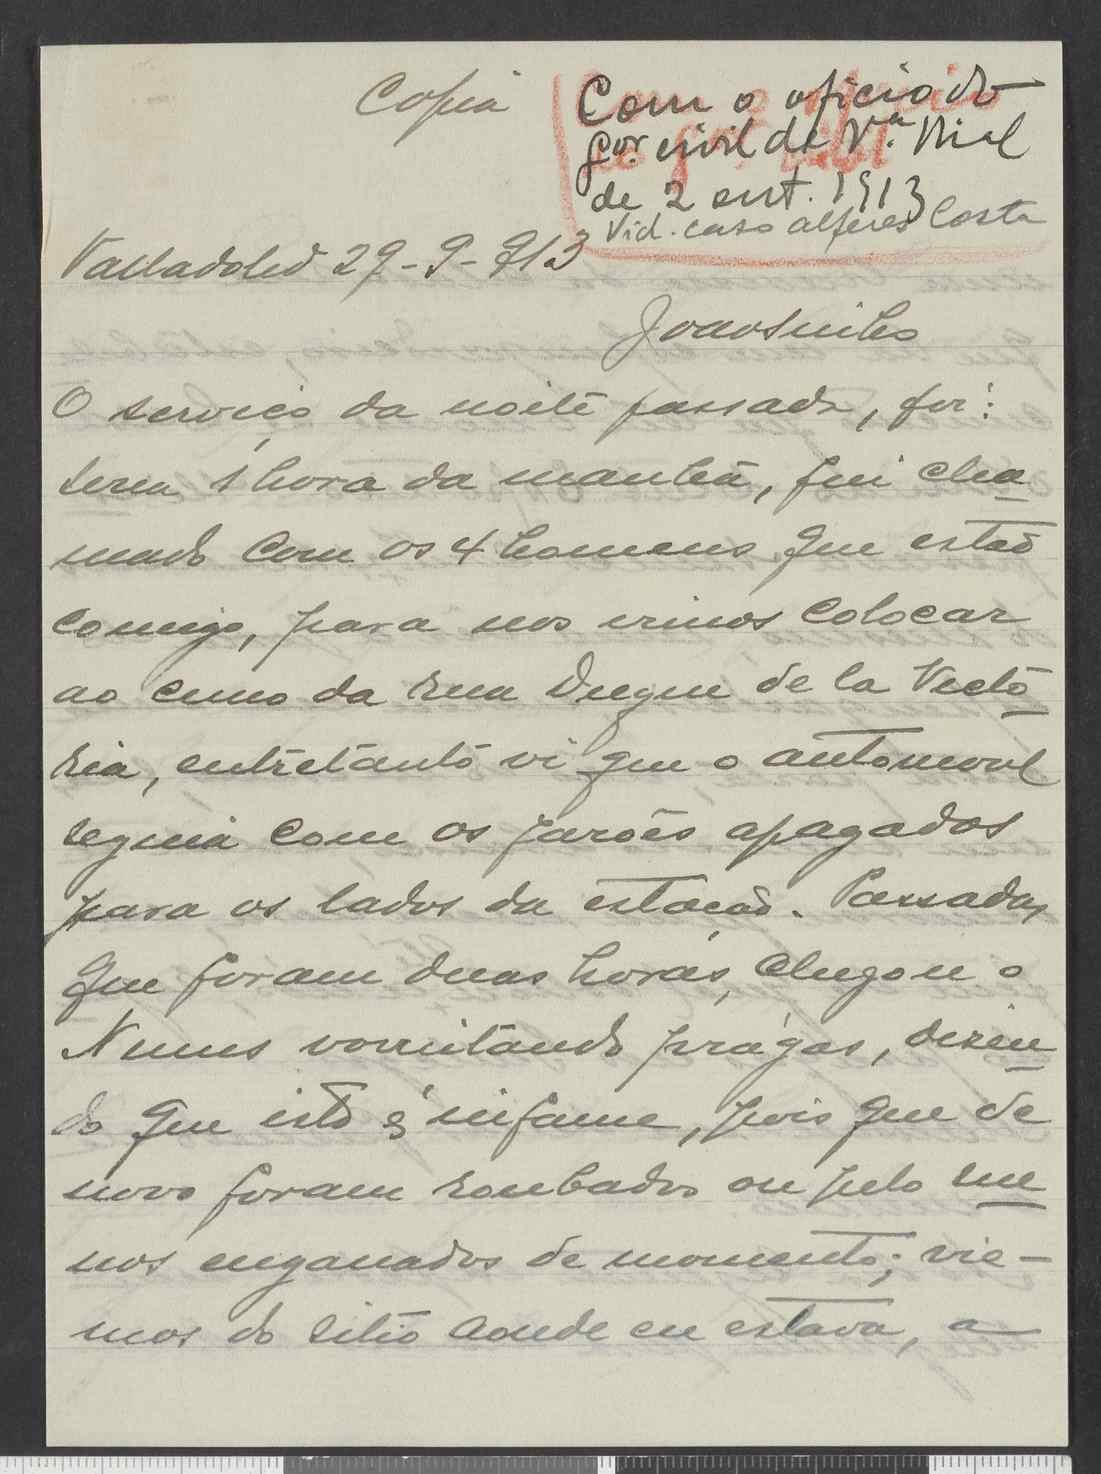 Copia
Com o oficio do
gor. civil de Vª. Rial
de 2 out. 1913
Vid. caso alferes Costa
Valladolid 29-9-913
Joãosinho
O serviço da noite passada, foi:
seria 1 hora da manhã, fui cha
mado com os 4 homens que estão
comigo, para nos irmos colocar
ao cimo da rua Duque de la Victo
ria, entretanto vi que o automovel
seguia com os faróes apagados
para os lados da estação. Passadas
que foram duas horas, chegou o
Nunes vomitando prágas, dizen
do que isto é infame, pois que de
novo foram roubados ou pelo me
nos enganados de momento; vie-
mos do sitio aonde eu estava, a